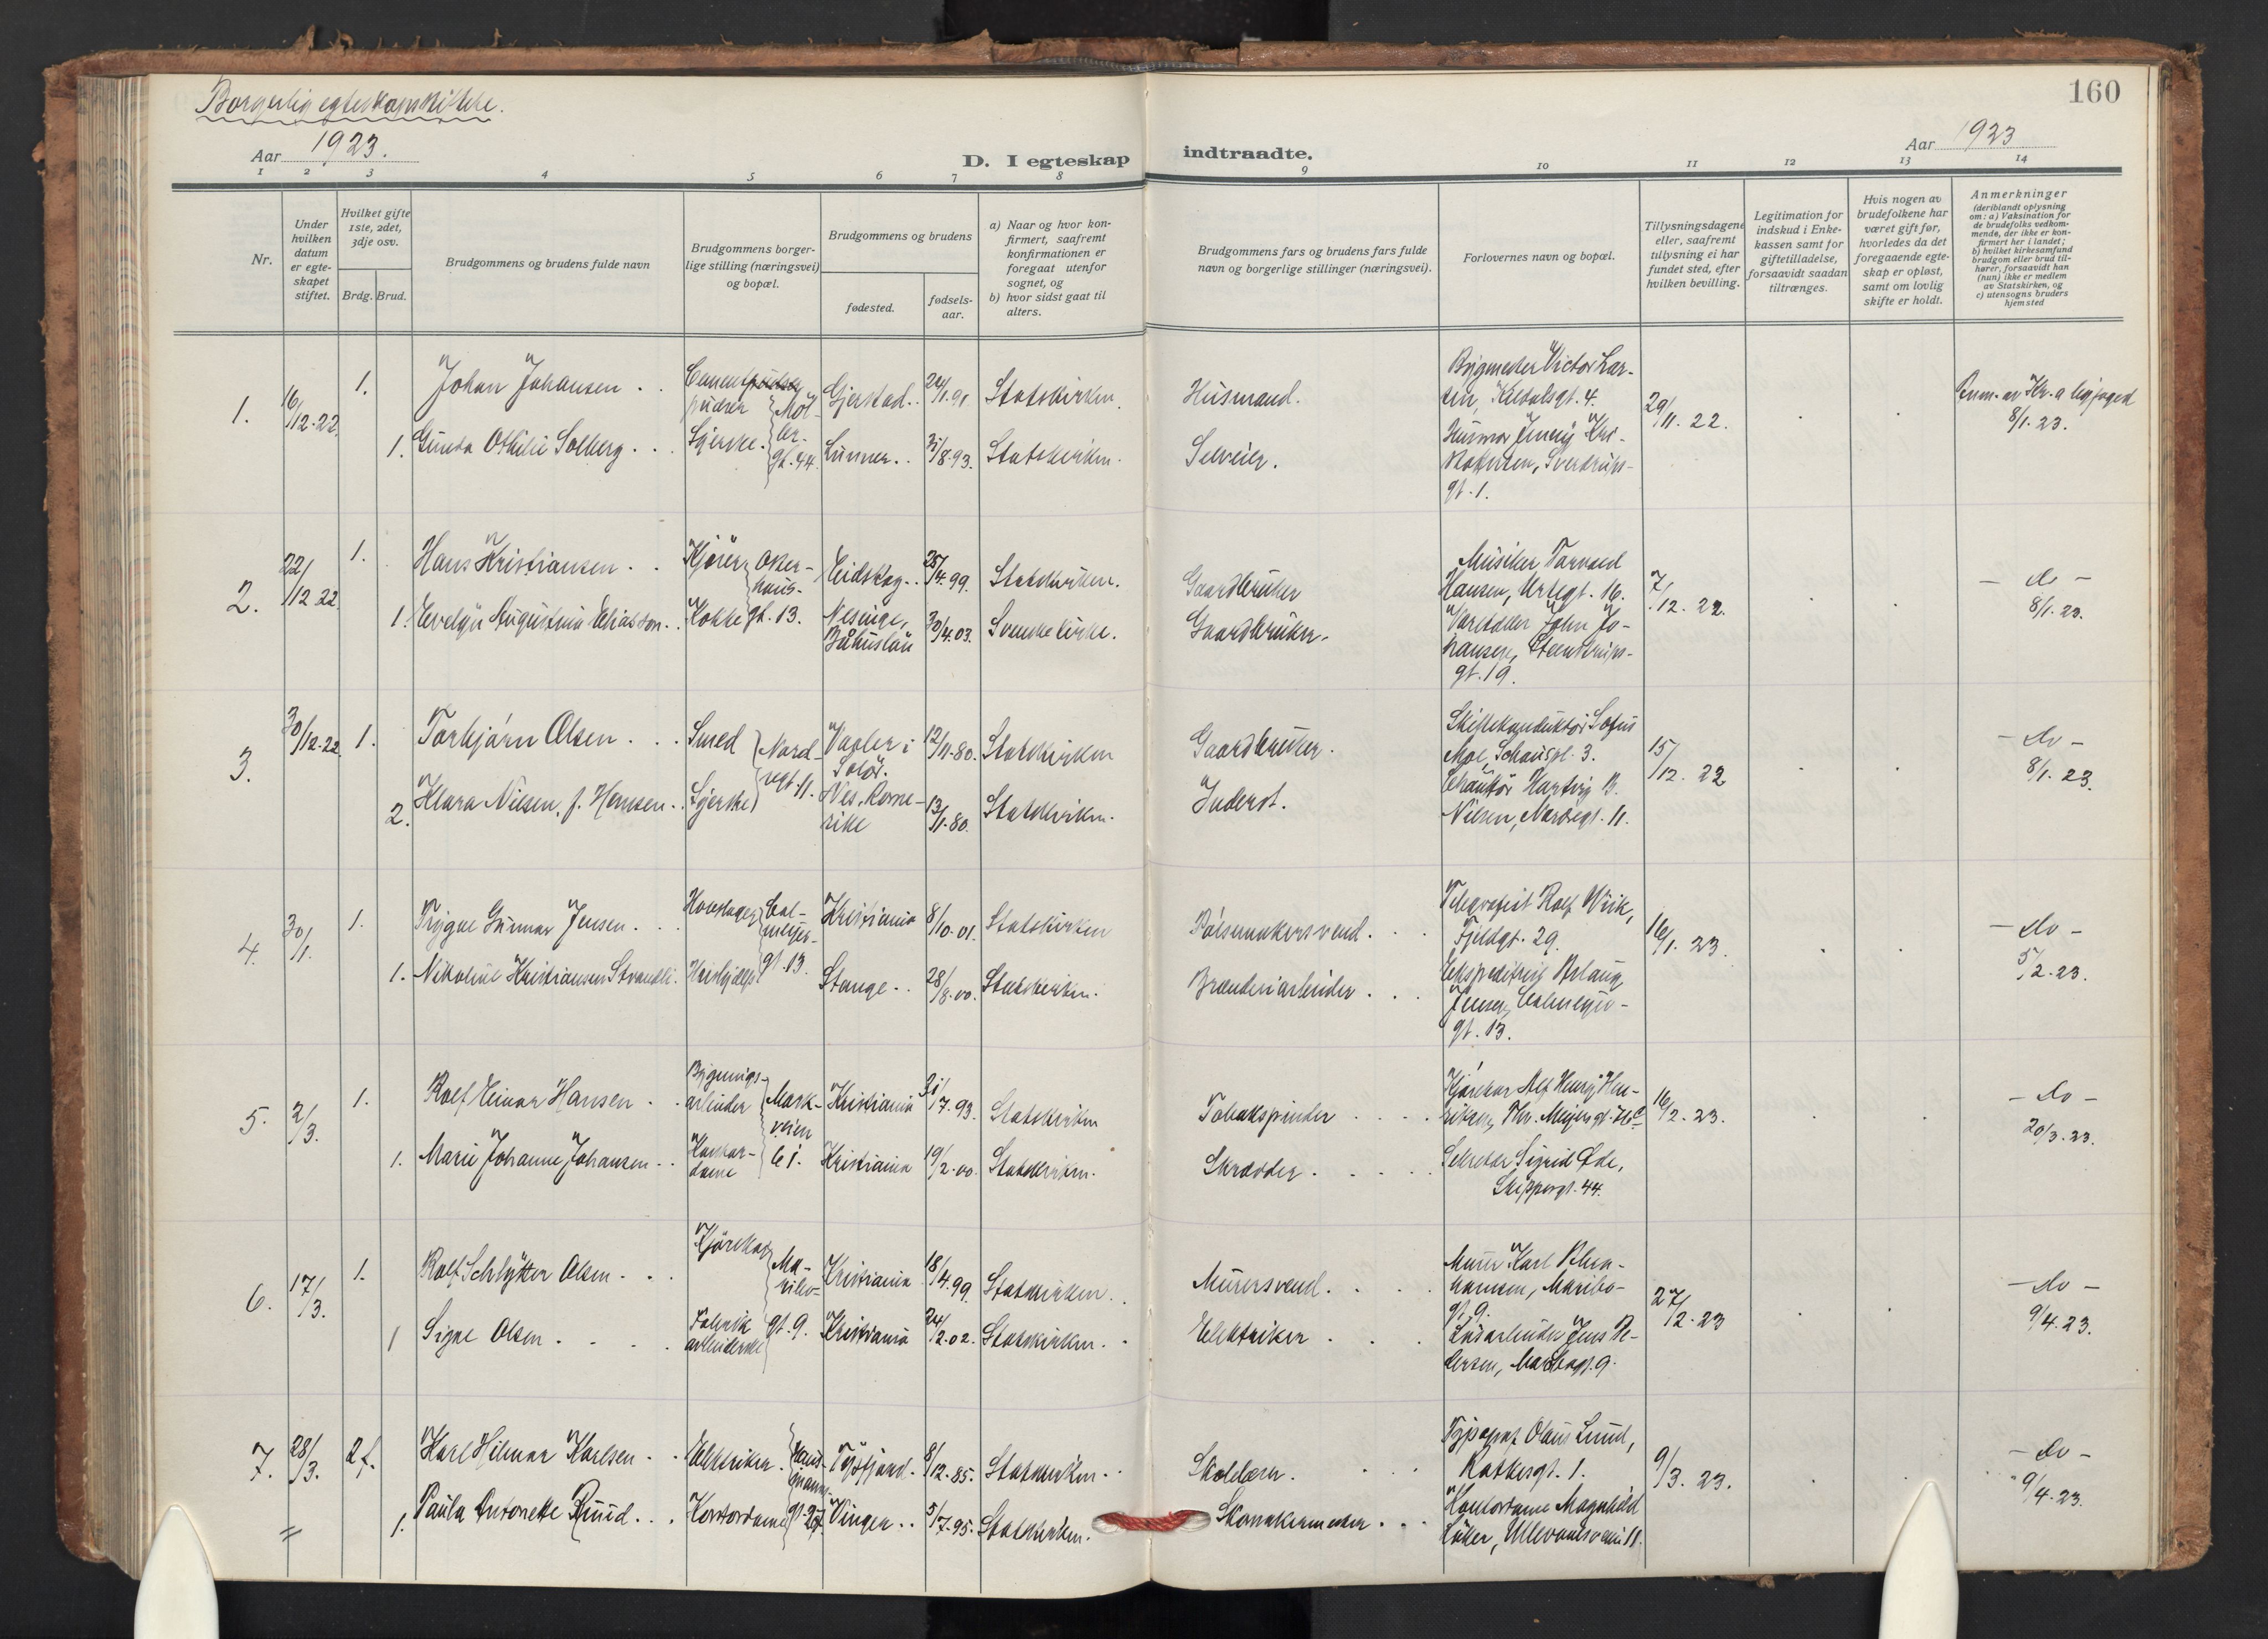 Borgerlig egteskapsstiftelse.
160
Aar 1923.
Aar 1923
D. I egteskap indtraadte.
1 2 3 4 5 6 7 8 9 10 11 12 13 14
Nr.
Under hvilken datum er egteskapet stiftet.
Hvilket gifte 1ste, 2det, 3dje osv.
Brdg. Brud.
Brudgommens og brudens fulde navn
Brudgommens borgerlige stilling (næringsvei) og bopæl.
Brudgommens og brudens
fødested.
fødselsaar.
a) Naar og hvor konfirmert, saafremt konfirmationen er foregaat utenfor sognet, og
b) hvor sidst gaat til alters.
Brudgommens fars og brudens fars fulde navn og borgerlige stillinger (næringsvei).
Forlovernes navn og bopæl.
Tillysningsdagene eller, saafremt tillysning ei har fundet sted, efter hvilken bevilling.
Legitimation for indskud i Enkekassen samt for giftetilladelse, forsaavidt saadan tiltrænges.
Hvis nogen av brudefolkene har været gift før, hvorledes da det foregaaende egteskap er opløst, samt om lovlig skifte er holdt.
Anmerkninger
(deriblandt oplysning om: a) Vaksination for de brudefolks vedkommende, der ikke er konfirmert her i landet; b) hvilket kirkesamfund brudgom eller brud tilhører, forsaavidt han (hun) ikke er medlem av Statskirken, og c) utensogns bruders hjemsted
1. 16/12-22. 1. Johan Johansen . . Cementpudser Gjerstad . . 24/1.91 Statskirken. Husmand.
Bygmester Victor Larsen, 4.
29/11. 22.
Anm. av Kr.a byfoged 8/1. 23.
1. Gunda Othilie Solberg . . . Syerske. Møllergt. 44. Lunner . . 31/8.93. Statskirken. Selveier.
Husmor Jenny Kristoffersen, Sverdrupsgt. 1.
2. 22/12 22. 1. Hans Kristiansen . . Kjører Akershusgt. 13. Eidskog . . 28/4.99. Statskirken. Gaardbruker
Musiker Torvald Hansen, Urtegt. 16.
7/12. 22.
- do -
8/1. 23.
1. Evelyn Augustinia Eliasson . . Kokke Båhuslän 30/4.03. Svenske kirke. Gaardbruker.
John Johansen, Steenstrupsgt. 19.
3. 30/12.22 1. Torbjørn Olsen . . . Smed Nordregt. 11. Vaaler i Solør. 12/11.80. Statskirken Gaardbruker.
Skiftekonduktør Sofus Moe, Schousgt. 3.
15/12. 22
- do -
8/1. 23.
2. Klara Nilsen, f. Hansen . . Syerske Nes, Romerike 13/11.80. Statskirken. Inderst.
Chauffør Hartvig B. Nilsen, Nordregt. 11.
4. 30/1. 1. Trygve Gunnar Jensen . . . Hovslager Calmeyergt. 13. Kristiania 8/10.01. Statskirken Pølsemakersvend . .
Telegrafist Rolf Wiik, Fjeldgt. 29.
16/1. 23.
- do -
5/2.23.
1. Nikoline Kristiansen Strandli. Stange . . 28/8.00. Statskirken. Brænderiarbeider . . .
Ekspeditrice Aslaug Jensen, Calmeyergt. 13.
5. 2/3. 1. Rolf Einar Hansen . . Bygningsarbeider Markveien 61. Kristiania 31/7.93. Statskirken Tobakspinder . . . .
Kjørekar Alf Henry Henriksen, Thv. Meyersgt.
16/2. 23.
- do -
20/3.23.
1. Marie Johanne Johansen . . Kontordame Kristiania 19/2.00. Statskirken. Skrædder . . . .
Sekretær Sigrid Øde, Skippergt. 44.
6. 17/3. 1. Rolf Schlytter Olsen . . . Kjørekar Maribogt. 9. Kristiania 18/4.99. Statskirken . . Murersvend . . .
Murer Karl Johansen, Maribogt. 9.
27/2.23
- do -
9/4.23.
1 Signe Olsen . . . . Fabrikarbeiderske Kristiania 24/2.02. Statskirken . . Elektriker . . .
Løsarbeider Jens Pedersen, Maribogt. 9.
7. 28/3. 2 f. Karl Hilmar Karlsen . . Elektriker. Hausmannsgt. 27. 8/12.85. Statskirken . . Skolelærer . . .
Typograf Olaus Lund, Rathkesgt. 1.
9/3. 23.
- do -
9/4.23.
1. Paula Antonette Ruud . . . Kontordame Vinger . . 5/7.95. Statskirken. Skomakermester . . .
Kontordame Magnhild Ullevoldsveien 11.